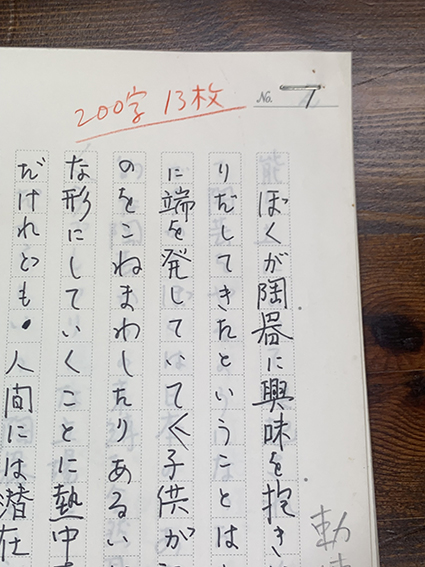 200字 13枚
No. 1
ぼくが陶器に興味を抱き
りだしてきたということは
に端を発していて〈子供が
のをこねまわしたりあるい
な形にしていくことに熱中
だけれども・人間には潜在